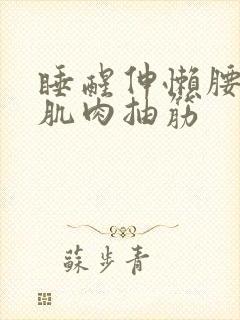 睡醒伸懒腰
肌肉抽筋
蘇步青